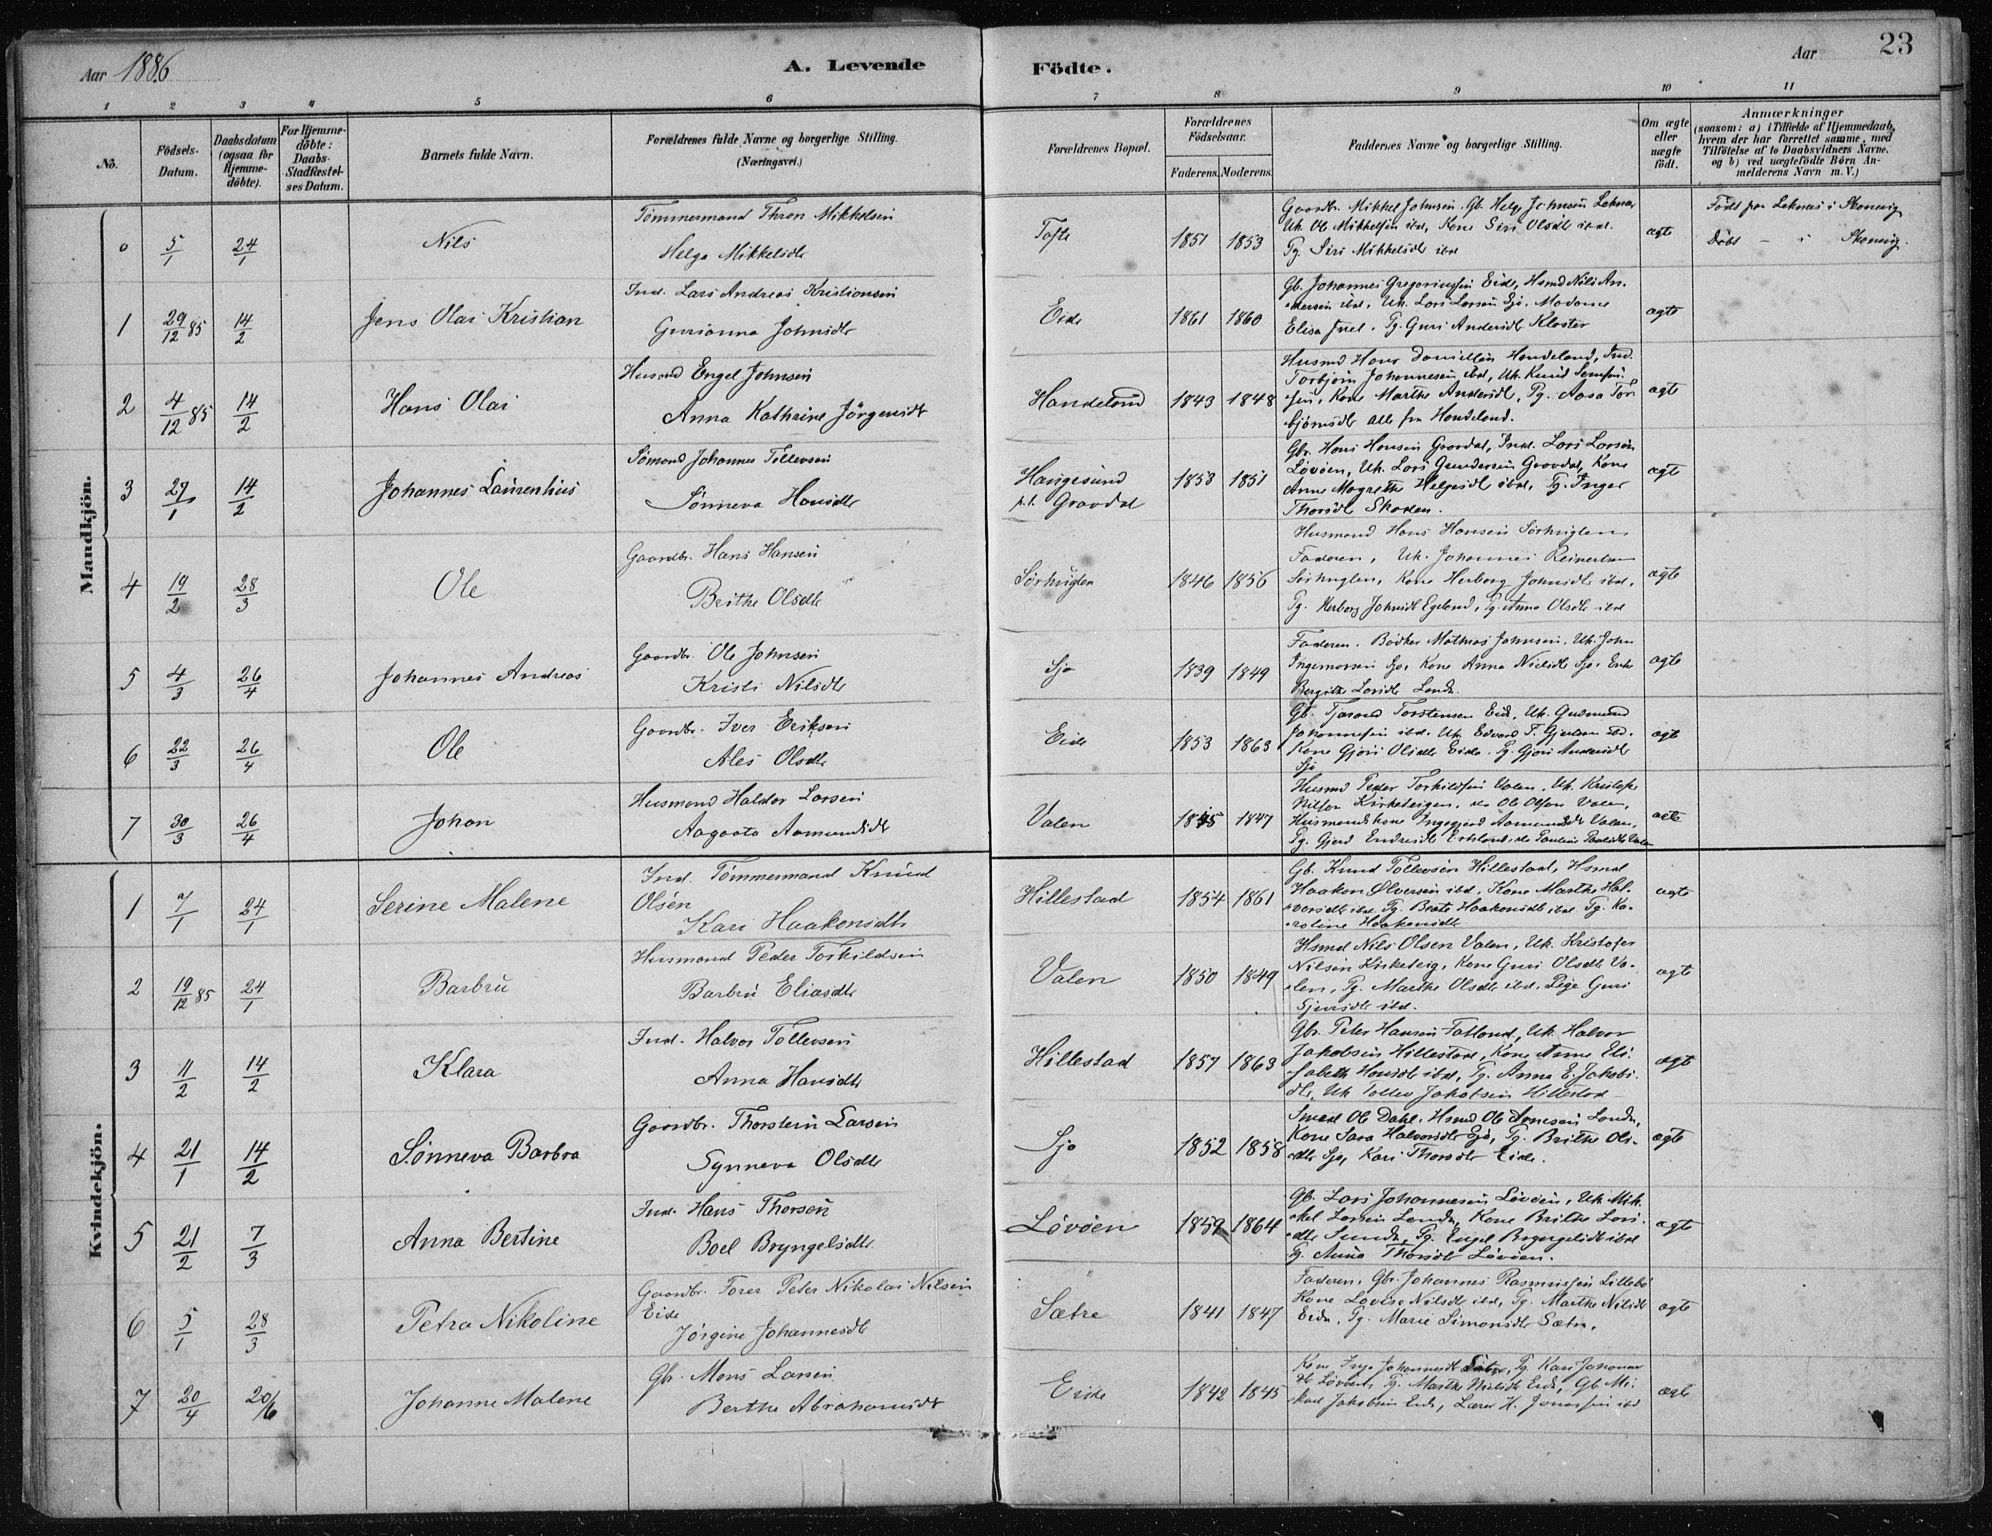 Aar 1886 A. Levende Födte. Aar 23
1 2 3 4 5 6 7 8 9 10 11
No.
Födsels-Datum.
Daabsdatum (ogsaa for Hjemme-döbte).
For Hjemme-döbte: Daabs-Stadfæstel-ses Datum.
Barnets fulde Navn.
Forældrenes fulde Navne og borgerlige Stilling.
(Næringsvei.)
Forældrenes Bopæl.
Forældrenes Födselsaar.
Faderens. Moderens.
Faddernes Navne og borgerlige Stilling.
Om ægte eller uægte födt.
Anmærkninger
(saasom: a) i Tilfælde af Hjemmedaab, hvem der har forrettet samme, med Tilföielse af to Daabsvidners Navne. og b) ved uægtefödte Börn An-melderens Navn m. V.)
Mandkjön.
0 5/1 24/1 Nils
Tømmermand Thron Mikkelsen
Helga Mikkelsdt
Tofte 1851 1853
Gaardbr. Mikkel Johnsen, Gb. Helge Johnsen Leknes
Uk Ole Mikkelsen ibd, Kone Siri Olsdt ibd.
Pg. Siri Mikkelsdt ibd
ægte
Født paa Leknes i Skonevig
Døbt – i Skonevig.
1 29/12 85 14/2 Jens Olai Kristian
Ind. Lars Andreas Kristiansen
Gurianna Johnsdt
Eide 1861 1860
Gb. Johannes Gregoriussen Eide, Hsmd Nils An-
dersen ibd, Uk. Lars Larsen Sjo, Madame
Elisa Juel. Pg. Guri Andersdt Kloster
ægte
2 4/12 85 14/2 Hans Olai
Husmd Engel Johnsen
Anna Kathrine Jörgensdt
Handeland 1843 1848
Husmd Hans Danielsen Handeland, Ind.
Torbjörn Johannesen ibd, Uk Knud
sen, Kone Marthe Andersdt, Pg. Aasa Tor
bjørnsdt alle fra Handeland.
ægte
3 27/1 14/2 Johannes Laurentius
Sømand Johannes Tollevsen
Sønneva Hansdt
Haugesund
p.t. Gravdal
1858 1851
Gbr. Hans Hansen Gravdal, Ind. Lars Larsen
Løvöen, Uk. Lars Gundersen Gravdal, Kone
Anne Magrethe Helgesdt ibd, Pg. Inger
Thorsdt Skaden.
ægt
4 19/2 28/3 Ole
Gaardbr. Hans Hansen
Brithe Olsdt
Sørhuglen 1846 1856
Husmand Hans Hansen Sørhuglen
Faderen, Uk. Johannes Reinertsen
Sørhuglen, Kone Herborg Johnsdt ibd,
Pg. Herborg Johnsdt Egeland, Pg. Anna Olsdt ibd
ægte
5 4/3 26/4 Johannes Andreas
Gaardbr. Ole Johnsen
Kristi Nilsdt
Sjo 1839 1849
Faderen. Bödker Mathias Johnsen, Uk. John
Ingemarsen Sjo, Kone Anna Nielsdt Sjo. Enke
Bergithe Larsdt Landa.
ægte
6 22/3 26/4 Ole
Gaardbr. Iver Eriksen
Ales Olsdt
Eide 1853 1863
Gb. Tjarand Torstensen Eide, Uk. Gudmund
Johannesen ibd. Uk Edvard T. ibd.
Kone Gjöri Olsdt Eide. Pg. Gjöri Andersdt
Sjo
ægt
7 30/3 26/4 Johan
Husmand Haldor Larsen
Aagaata Aamundsdt
Valen 1845 1847
Husmd Peder Torkildsen Valen, Uk. Kristofer
Nilsen Kirkebergen, do Ole Olsen Valen,
Husmandskone Ingegjerd Aamundsdt Valen,
Pg. Gjerd Endresdt Eskeland, do Pauline Paulsdt Valen
ægte
Kvindekjön.
1 7/1 24/1 Serine Malene
Ind. Tømmermand Knud
Olsen
Kari Haakonsdt
Hillestad 1854 1861
Gb. Knud Tollevsen Hillestad, Hsmd
Haakon Ølversen ibd, Kone Marthe Hal-
vorsdt ibd. Pg. Beate Haakonsdt ibd Pg. Ka-
roline Haakonsdt
ægte
2 19/12 85 24/1 Barbru
Husmand Peder Torkildsen
Barbru Eliasdt
Valen 1850 1849
Hsmd Nils Olsen Valen, Uk. Kristofer
Nilsen Kirkeberg, Kone Guri Olsdt Va-
len, Pg. Marthe Olsdt ibd. Pige Guri
Sjursdt ibd.
ægte
3 11/2 14/2 Klara
Ind. Halvor Tollevsen
Anna Hansdt
Hillestad 1857 1863
Gbr. Peter Hansen Tatland, Uk. Halvor
Jakobsen Hillestad, Kone Anne Eli-
sabeth Hansdt ibd, Pg. Anna E. Jakobs-
dt, Uk Tollev Jakobsen Hillestad
ægt
4 21/1 14/2 Sønneva Barbra
Gaardbr. Thorstein Larsen
Synneva Olsdt
Sjo 1852 1858
Smed Ole Dahl, Hsmd Ole Arnesen Landa,
Kone Sara Halvorsdt Sjo, Pg. Brithe Ols-
dt Sjo, Kari Thorsdt Eide.
ægte
5 21/2 7/3 Anna Bertine
Ind. Hans Thorsen
Boel Bryngelsdt
Løvöen 1859 1864
Gb. Lars Johannesen Løvöen, Uk. Mik-
kel Larsen Landa, Kone Brithe Lars-
dt Sunda, Pg. Engel Bryngelsdt ibd
Pg. Anna Thorsdt Løvöen.
ægte
6 5/1 28/3 Petra Nikoline
Gaardbr. Forer Peter Nikolai Nilsen
Eide
Jørgine Johannesdt
Sætre 1841 1847
Faderen, Gbr. Johannes Rasmussen Lillebø
Kone Lovise Nilsdt ibd, Pg. Marthe Nilsdt
Eide, Pg. Marie Simonsdt Sætre.
ægte
7 20/4 20/6 Johanne Malene
Gb. Mons Larsen
Berthe Abrahamsdt
Eide 1842 1845
Kone Inga Johannesdt Sætre, Pg. Kari Johannes
dt Løvöen, Pg. Marthe Nielsdt Eide, Gb. Mi-
kael Jakobsen Eide, Lærer H. Jonassen ibd
ægte